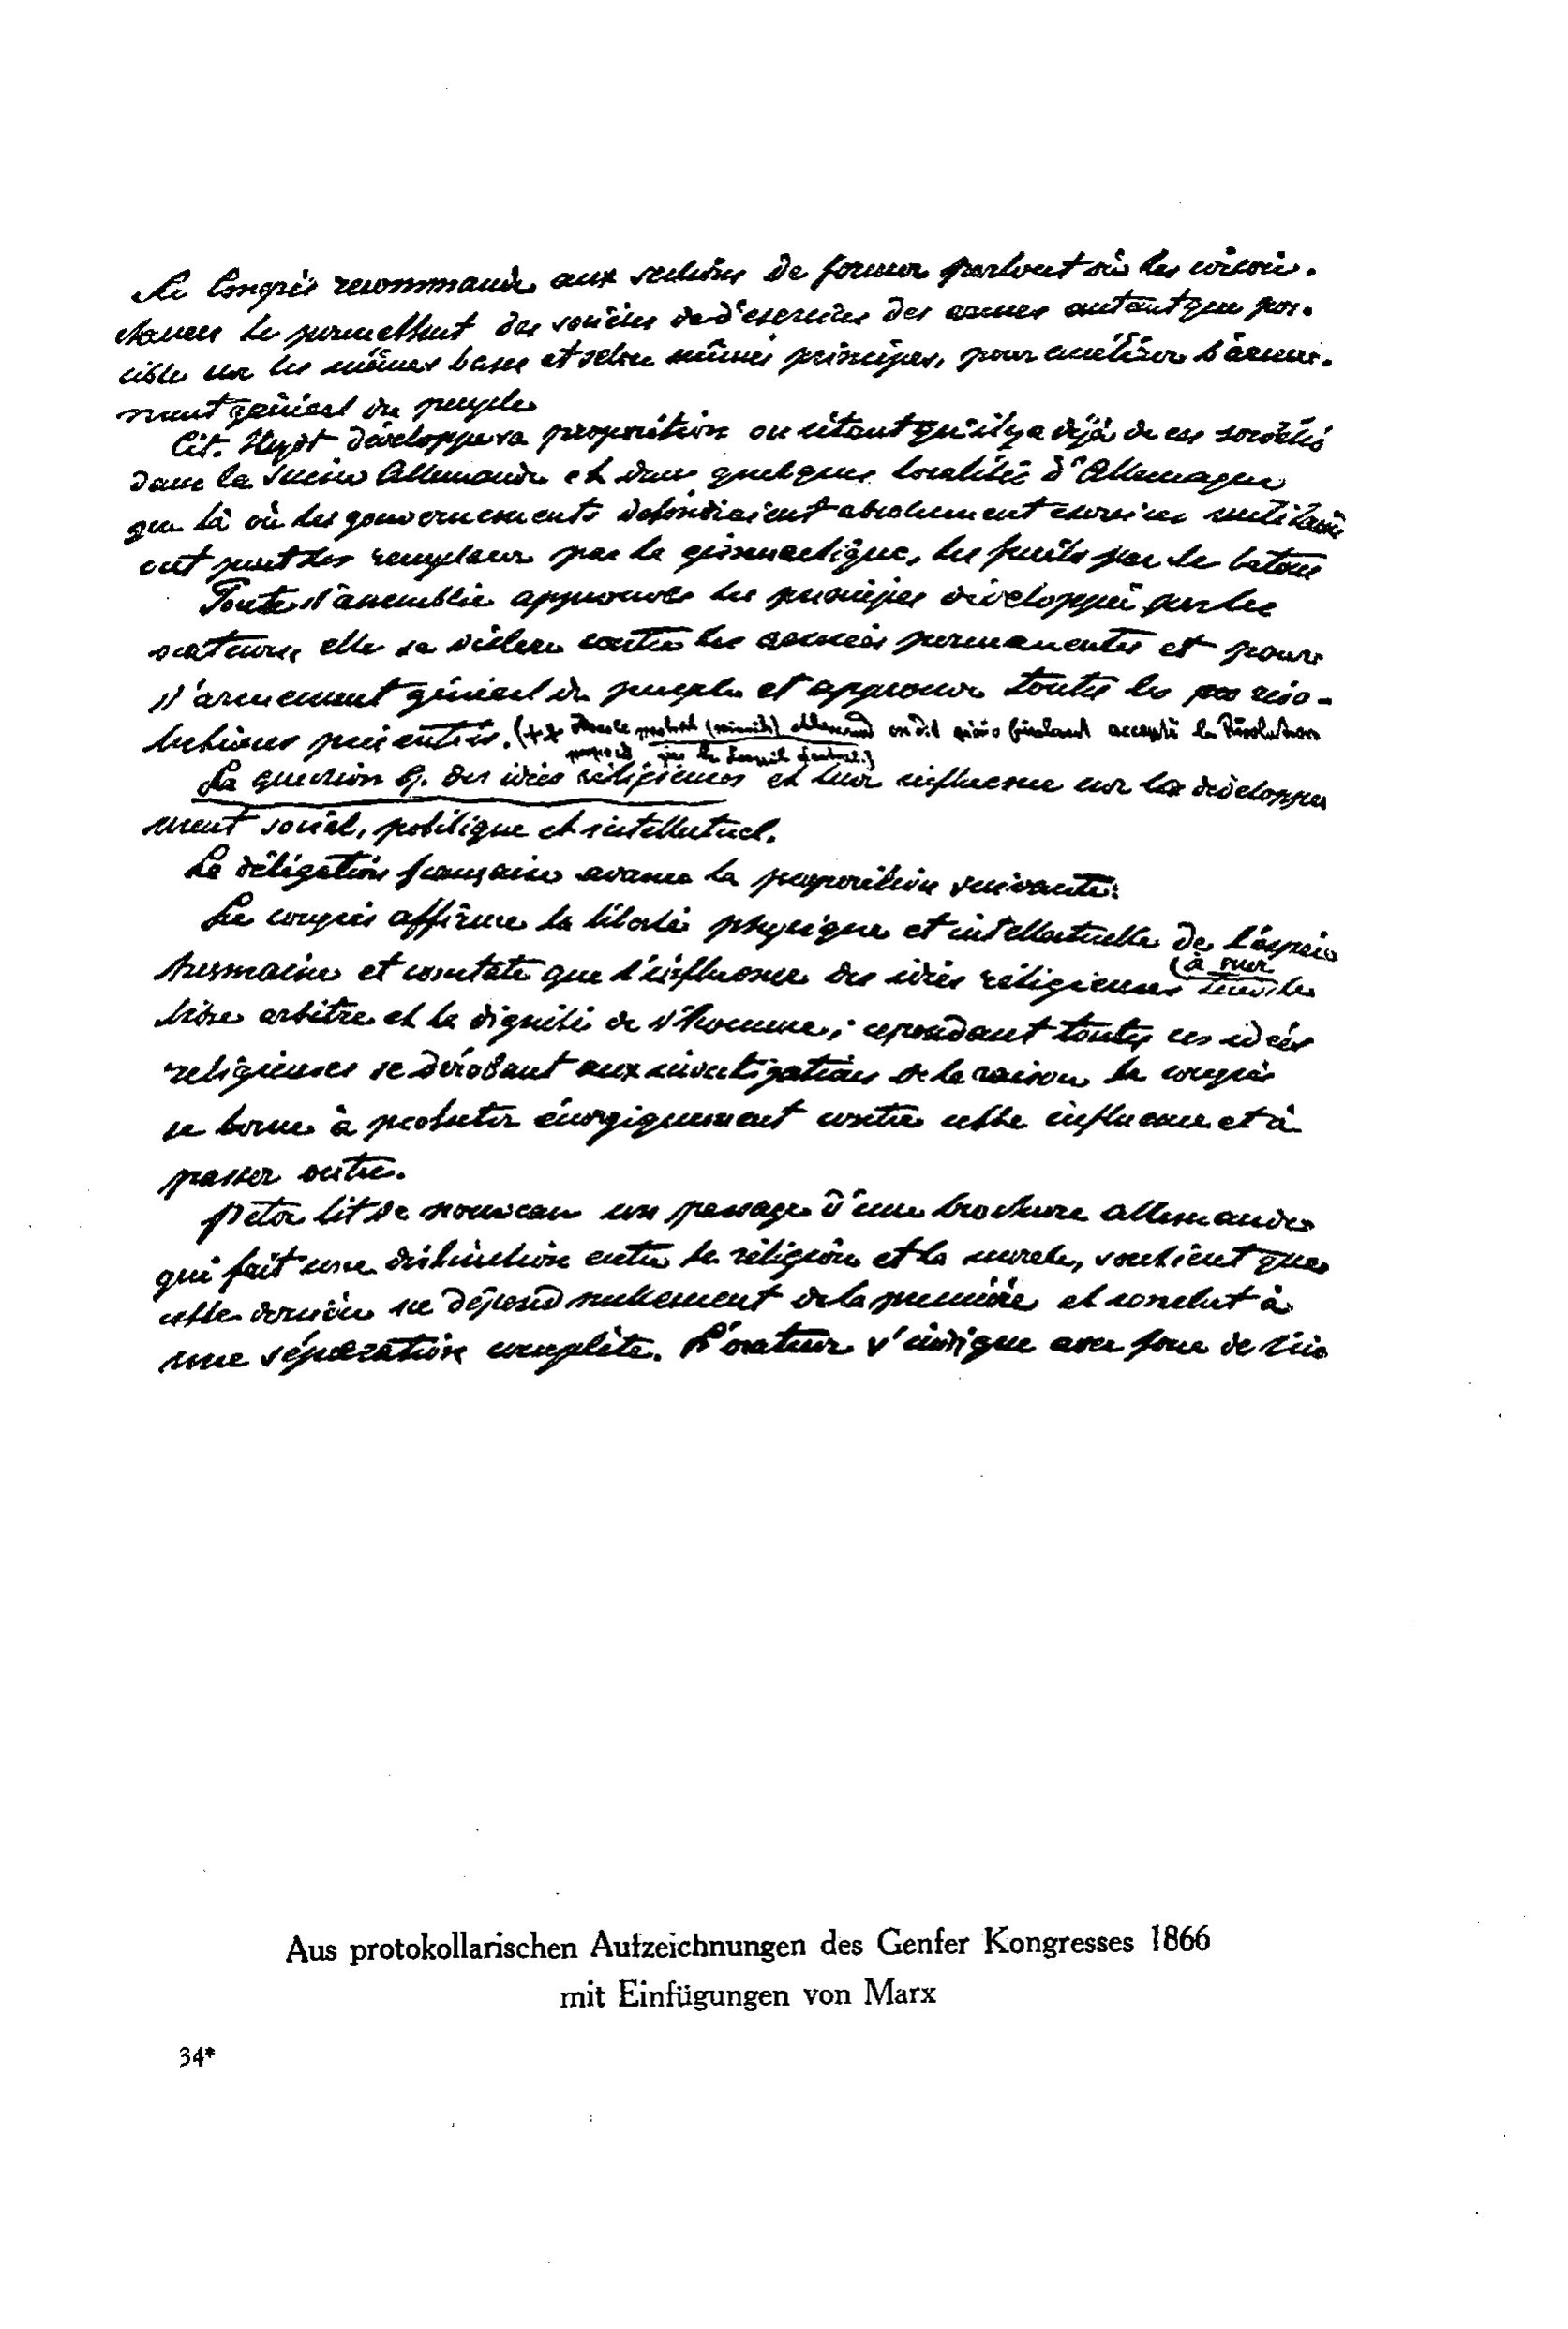 Le Congrès recommande aux sections de former partout où les circon-
stances le permettent des sociétés de d'exercice des armes autant que pos-
sible sur les mêmes bases et selon mêmes principes, pour améliorer l'arme-
ment général du peuple
Cit. Heydt développe sa proposition en citant qu'il y a déjà de ces sociétés
dans la Suisse Allemande et dans quelques localités d'Allemagne
que là où les gouvernements défendraient absolument exercices militaires
ont peut les remplacer par la gimnastique, les fusils par le batons
Toute l'assemblée approuve les principes développés par les
orateurs, elle se déclare contre les armées permanentes et pour
l'armement général du peuple et approuve toutes les réso-
lutions présentées. (++ allemand on dit accepté la Résolution
proposé par le Conseil Central.)
La question 9. des idées réligieuses et leur influence sur le développe
ment social, politique et intellectuel.
La délégation française avance la proposition suivante:
Le congrès affirme la liberté physique et intellectuelle de l'espèce
humaine et constate que l'influence des idées réligieuses
(à nier
le
libre arbitre et la dignité de l'homme; cependant toutes ces idées
religieuses se dérobant aux investigations de la raison le congrès
se borne à protester énergiquement contre cette influence et à
passer outre.
Peter lit de nouveau un passage d'une brochure allemande
qui fait une distinction entre la réligion et la morale, soutient que
cette dernière ne dépend nullement de la première et conclut à
une séparation complète. L'orateur s'indigne avec force de l'in
Aus protokollarischen Aufzeichnungen des Genfer Kongresses 1866
mit Einfügungen von Marx
34*